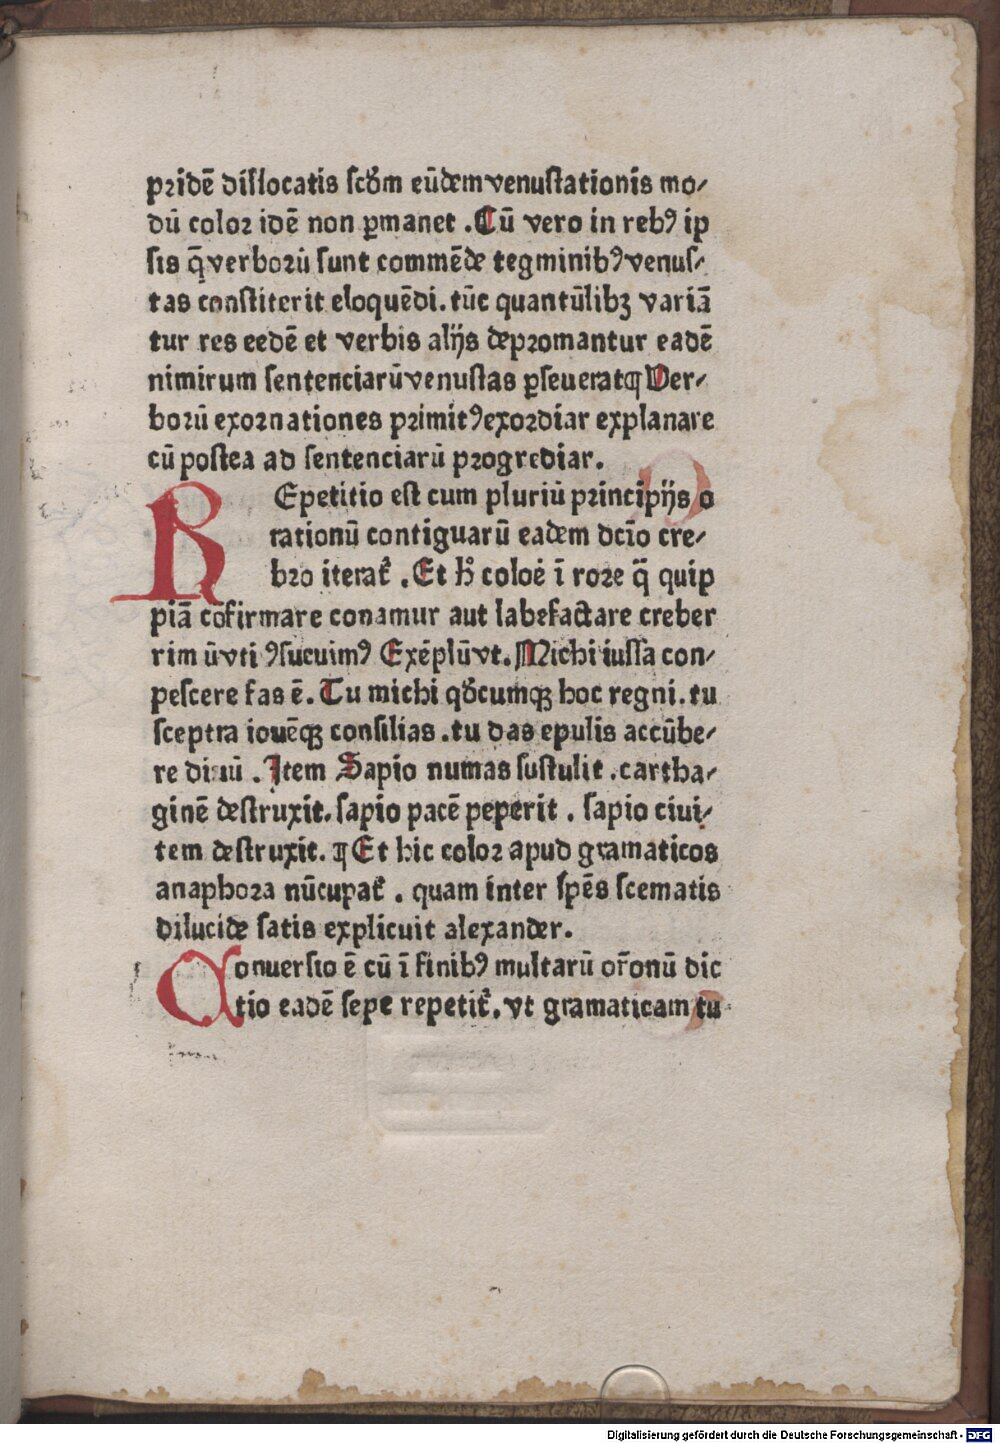 pridē dislocatis scðm eūdem venustationis mo⸗
dū color idē non ꝑmanet . Cū vero in rebꝰ ip
sis q̄ verborū sunt commēde tegminibꝰ venus⸗
tas constiterit eloquēdi. tūc quantūlibꝫ variā
tur res eedē et verbis alijs depromantur eadē
nimirum sentenciarū venustas ꝑseuerat ¶ Ver⸗
borū exornationes primitꝰ exordiar explanare
cū postea ad sentenciarū progrediar.
REpetitio est cum pluriū principijs o
rationū contiguarū eadem dcīo cre⸗
bro iterat̉ . Et h̉ coloē ī rore q̄ quip
piā cōfirmare conamur aut labefactare creber
rim ū vti ꝯsucuimꝰ Exēplū vt. Michi iussa con⸗
pescere fas ē. Tu michi qðcumqꝫ hoc regni. tu
sceptra iouēqꝫ consilias . tu das epulis accūbe⸗
re diuū . Item Sapio numas sustulit . cartha⸗
ginē destruxit. sapio pacē peperit . sapio ciui⸗
tem destruxit. ¶ Et hic color apud gramaticos
anaphora nūcupat̉ . quam inter spēs scematis
dilucide satis explicuit alexander.
Conuersio ē cū ī finibꝰ multarū or̄onū dic
tio eadē sepe repetit̉. vt gramaticam tu
Digitalisierung gefördert durch die Deutsche Forschungsgemeinschaft - DFG